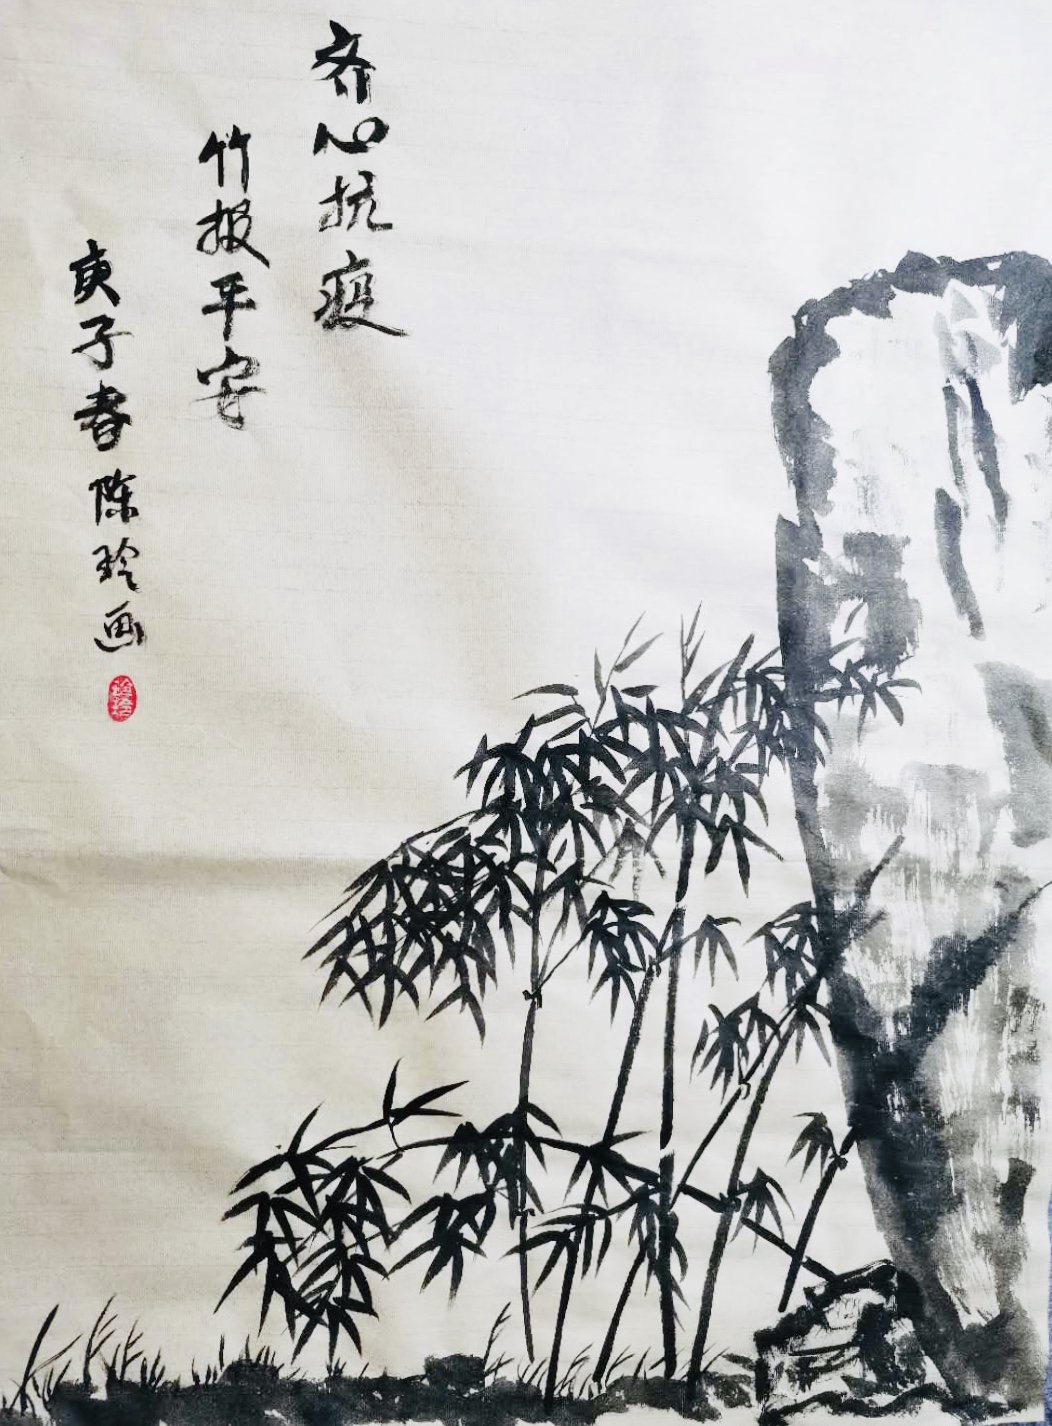 齐心抗疫
竹报平安
庚子春陈玲画